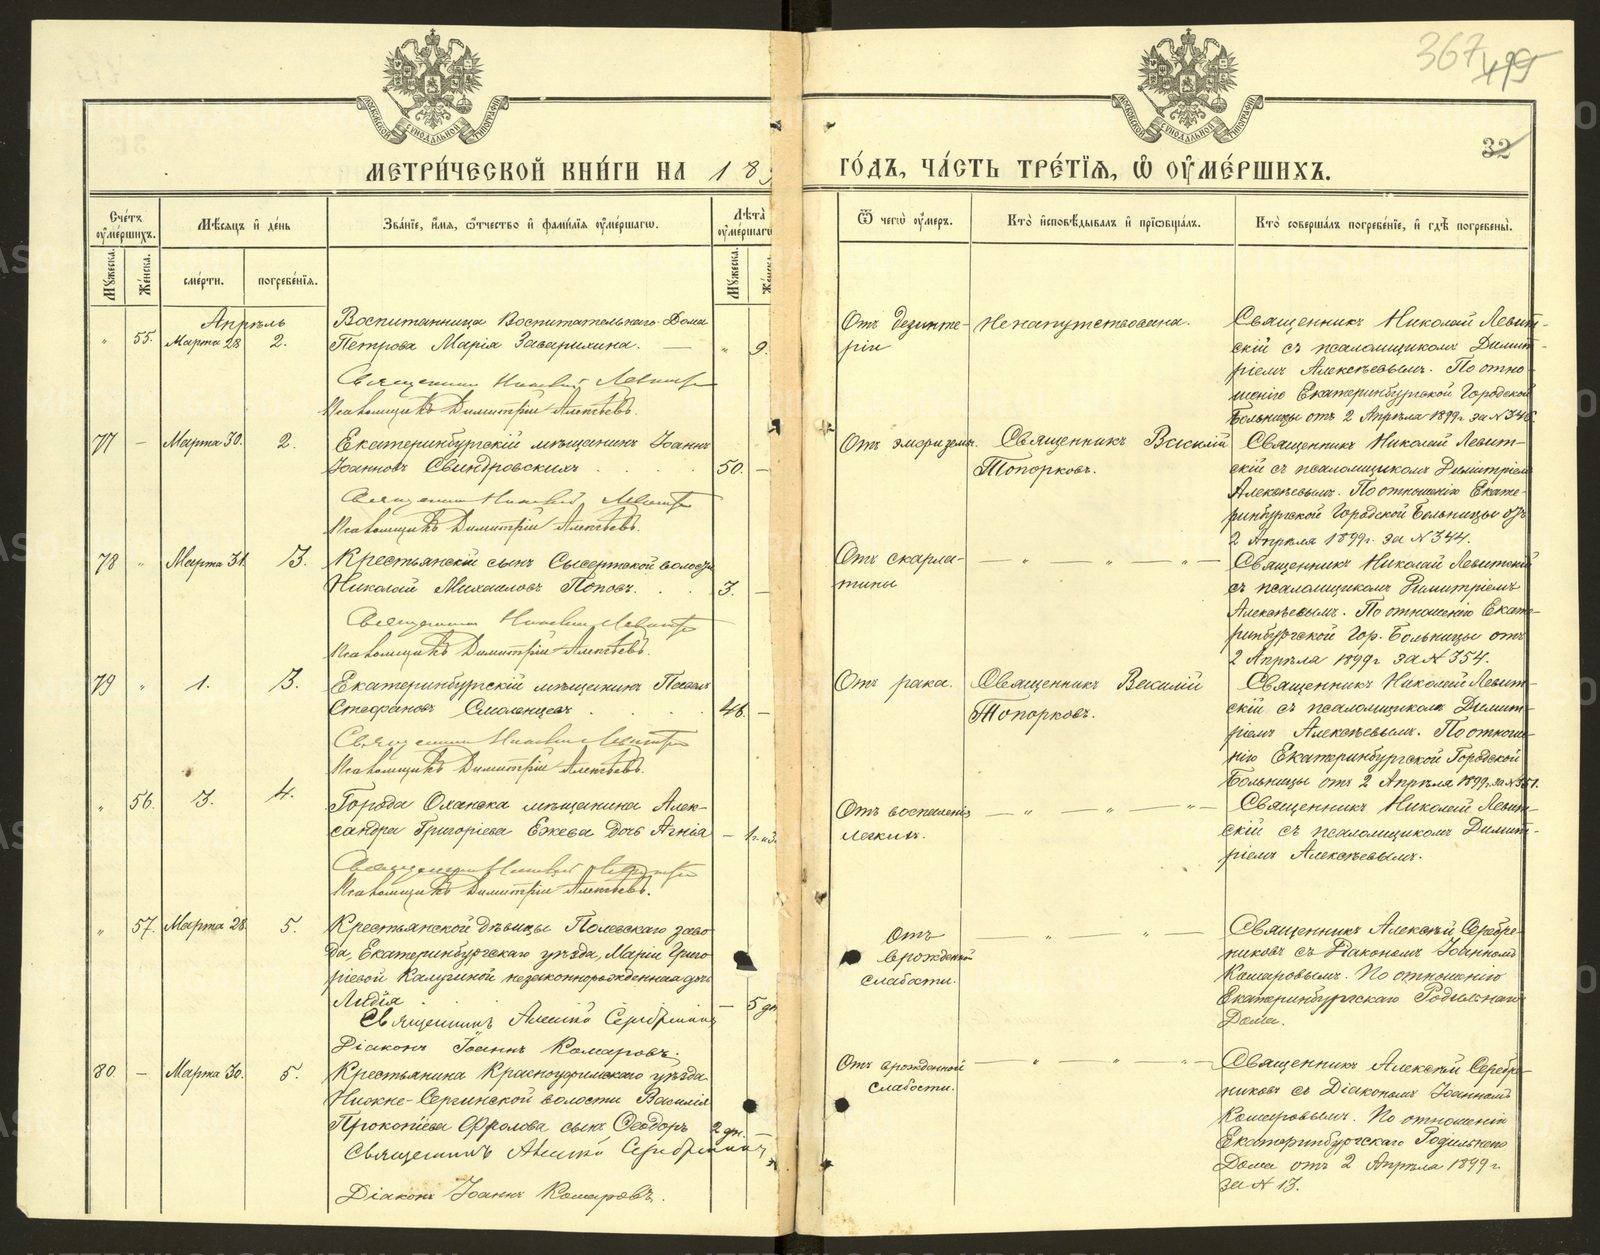 367
495
32
МОСКОВСКОЙ СѴНОДАЛЬНОЙ ТИПОГРАФІИ
МОСКОВСКОЙ СѴНОДАЛЬНОЙ ТИПОГРАФІИ
МЕТРИ́ЧЕСКОЙ КНИ́ГИ НА 189
ГО́ДЪ, ЧА́СТЬ ТРЕ́ТЇѦ, Ѡ҆ ОУ҆МЕ́РШИХЪ.
Сче́тъ оу҆ме́ршихъ.
Мѣ́сѧцъ и҆ де́нь
Зва́нїе, и҆́мѧ, ѻ҆́тчество и҆ фами́лїѧ оу҆ме́ршагѡ.
Лѣ́та оу҆ме́ршагѡ
Ѿ чегѡ̀ оу҆́меръ.
Кто̀ и҆сповѣ́дывалъ и҆ прїѡбща́лъ.
Кто̀ соверша́лъ погребе́нїе, и҆ гдѣ̀ погребены̀.
Мꙋ́жеска.
Же́нска.
сме́рти.
погребе́нїѧ.
Мꙋ́жеска.
Же́нска.
Апрѣль
" 55. Марта 28 2.
Воспитанница Воспитательнаго Дома
Петрова Марія Заварихина. — " 9.
Священникъ Николай Левитскій
Псаломщикъ Димитрій Алексѣевъ.
Отъ дезинте-
ріи
Ненапутствована.
Священникъ Николай Левит-
скій съ псаломщикомъ Димит-
ріемъ Алексѣевымъ. По отно-
шенію Екатеринбургской Городской
Больницы отъ 2 Апрѣля 1899 г. за N 346.
77 — Марта 30. 2.
Екатеринбургскій мѣщанинъ Іоаннъ
Іоанновъ Свиндровскихъ . . . . 50. —
Священникъ Николай Левитскій
Псаломщикъ Димитрій Алексѣевъ.
Отъ
Священникъ Василій
Топорковъ.
Священникъ Николай Левит-
скій съ псаломщикомъ Димитріемъ
Алексѣевымъ. По отношенію Екате-
ринбургской Городской Больницы отъ
2 Апрѣля 1899 г. за N 344.
78 " Марта 31. 3.
Крестьянскій сынъ Сысертской волости
Николай Михаиловъ Поповъ. . . 3. —
Священникъ Николай Левитскій
Псаломщикъ Димитрій Алексѣевъ.
Отъ скарла-
тины
— " — " — " —
Священникъ Николай Левитскій
съ псаломщикомъ Димитріемъ
Алексѣевымъ. По отношенію Екате-
ринбургской Гор. Больницы отъ
2 Апрѣля 1899 г за N 354.
79 " 1. 3.
Екатеринбургскій мѣщанинъ Павелъ
Стефановъ Смоленцевъ . . . . 46. —
Священникъ Николай Левитскій
Псаломщикъ Димитрій Алексѣевъ.
Отъ рака.
Священникъ Василій
Топорковъ.
Священникъ Николай Левит-
скій съ псаломщикомъ Димит-
ріемъ Алексѣевымъ. По отноше-
нію Екатеринбургской Городской
Больницы отъ 2 Апрѣля 1899 г. за N 351.
" 56. 3. 4.
Города Оханска мѣщанина Алек-
сандра Григоріева Ежева дочь Агнія — 1 г.
Священникъ Николай Левитскій
Псаломщикъ Димитрій Алексѣевъ.
Отъ воспаленія
легкихъ.
— " — " — " —
Священникъ Николай Левит-
скій съ псаломщикомъ Димит-
ріемъ Алексѣевымъ.
" 57. Марта 28. 5.
Крестьянской дѣвицы Полевскаго заво-
да, Екатеринбургскаго уѣзда, Маріи Григо-
ріевой Калугиной незаконнорожденная дочь
Лидія — 5 дн
Священникъ Алексій Серебренниковъ
Діаконъ Іоаннъ Комаровъ.
Отъ
врожденной
слабости.
— " — " —
Священникъ Алексѣй Серебре-
никовъ съ Діакономъ Іоанномъ
Комаровымъ. По отношенію
Екатеринбургскаго Родильнаго
Дома.
80. — Марта 30. 5.
Крестьянина Красноуфимскаго уѣзда
Нижне-Сергинской волости Василія
Прокопіева Фролова сынъ Ѳеодоръ 2 дн. —
Священникъ Алексій Серебренниковъ
Діаконъ Іоаннъ Комаровъ.
Отъ врожденной
слабости.
— " — " —
Священникъ Алексѣй Серебре-
никовъ съ Діакономъ Іоанномъ
Комаровымъ. По отношенію
Екатеринбургскаго Родильнаго
Дома отъ 2 Апрѣля 1899 г.
за N 13.